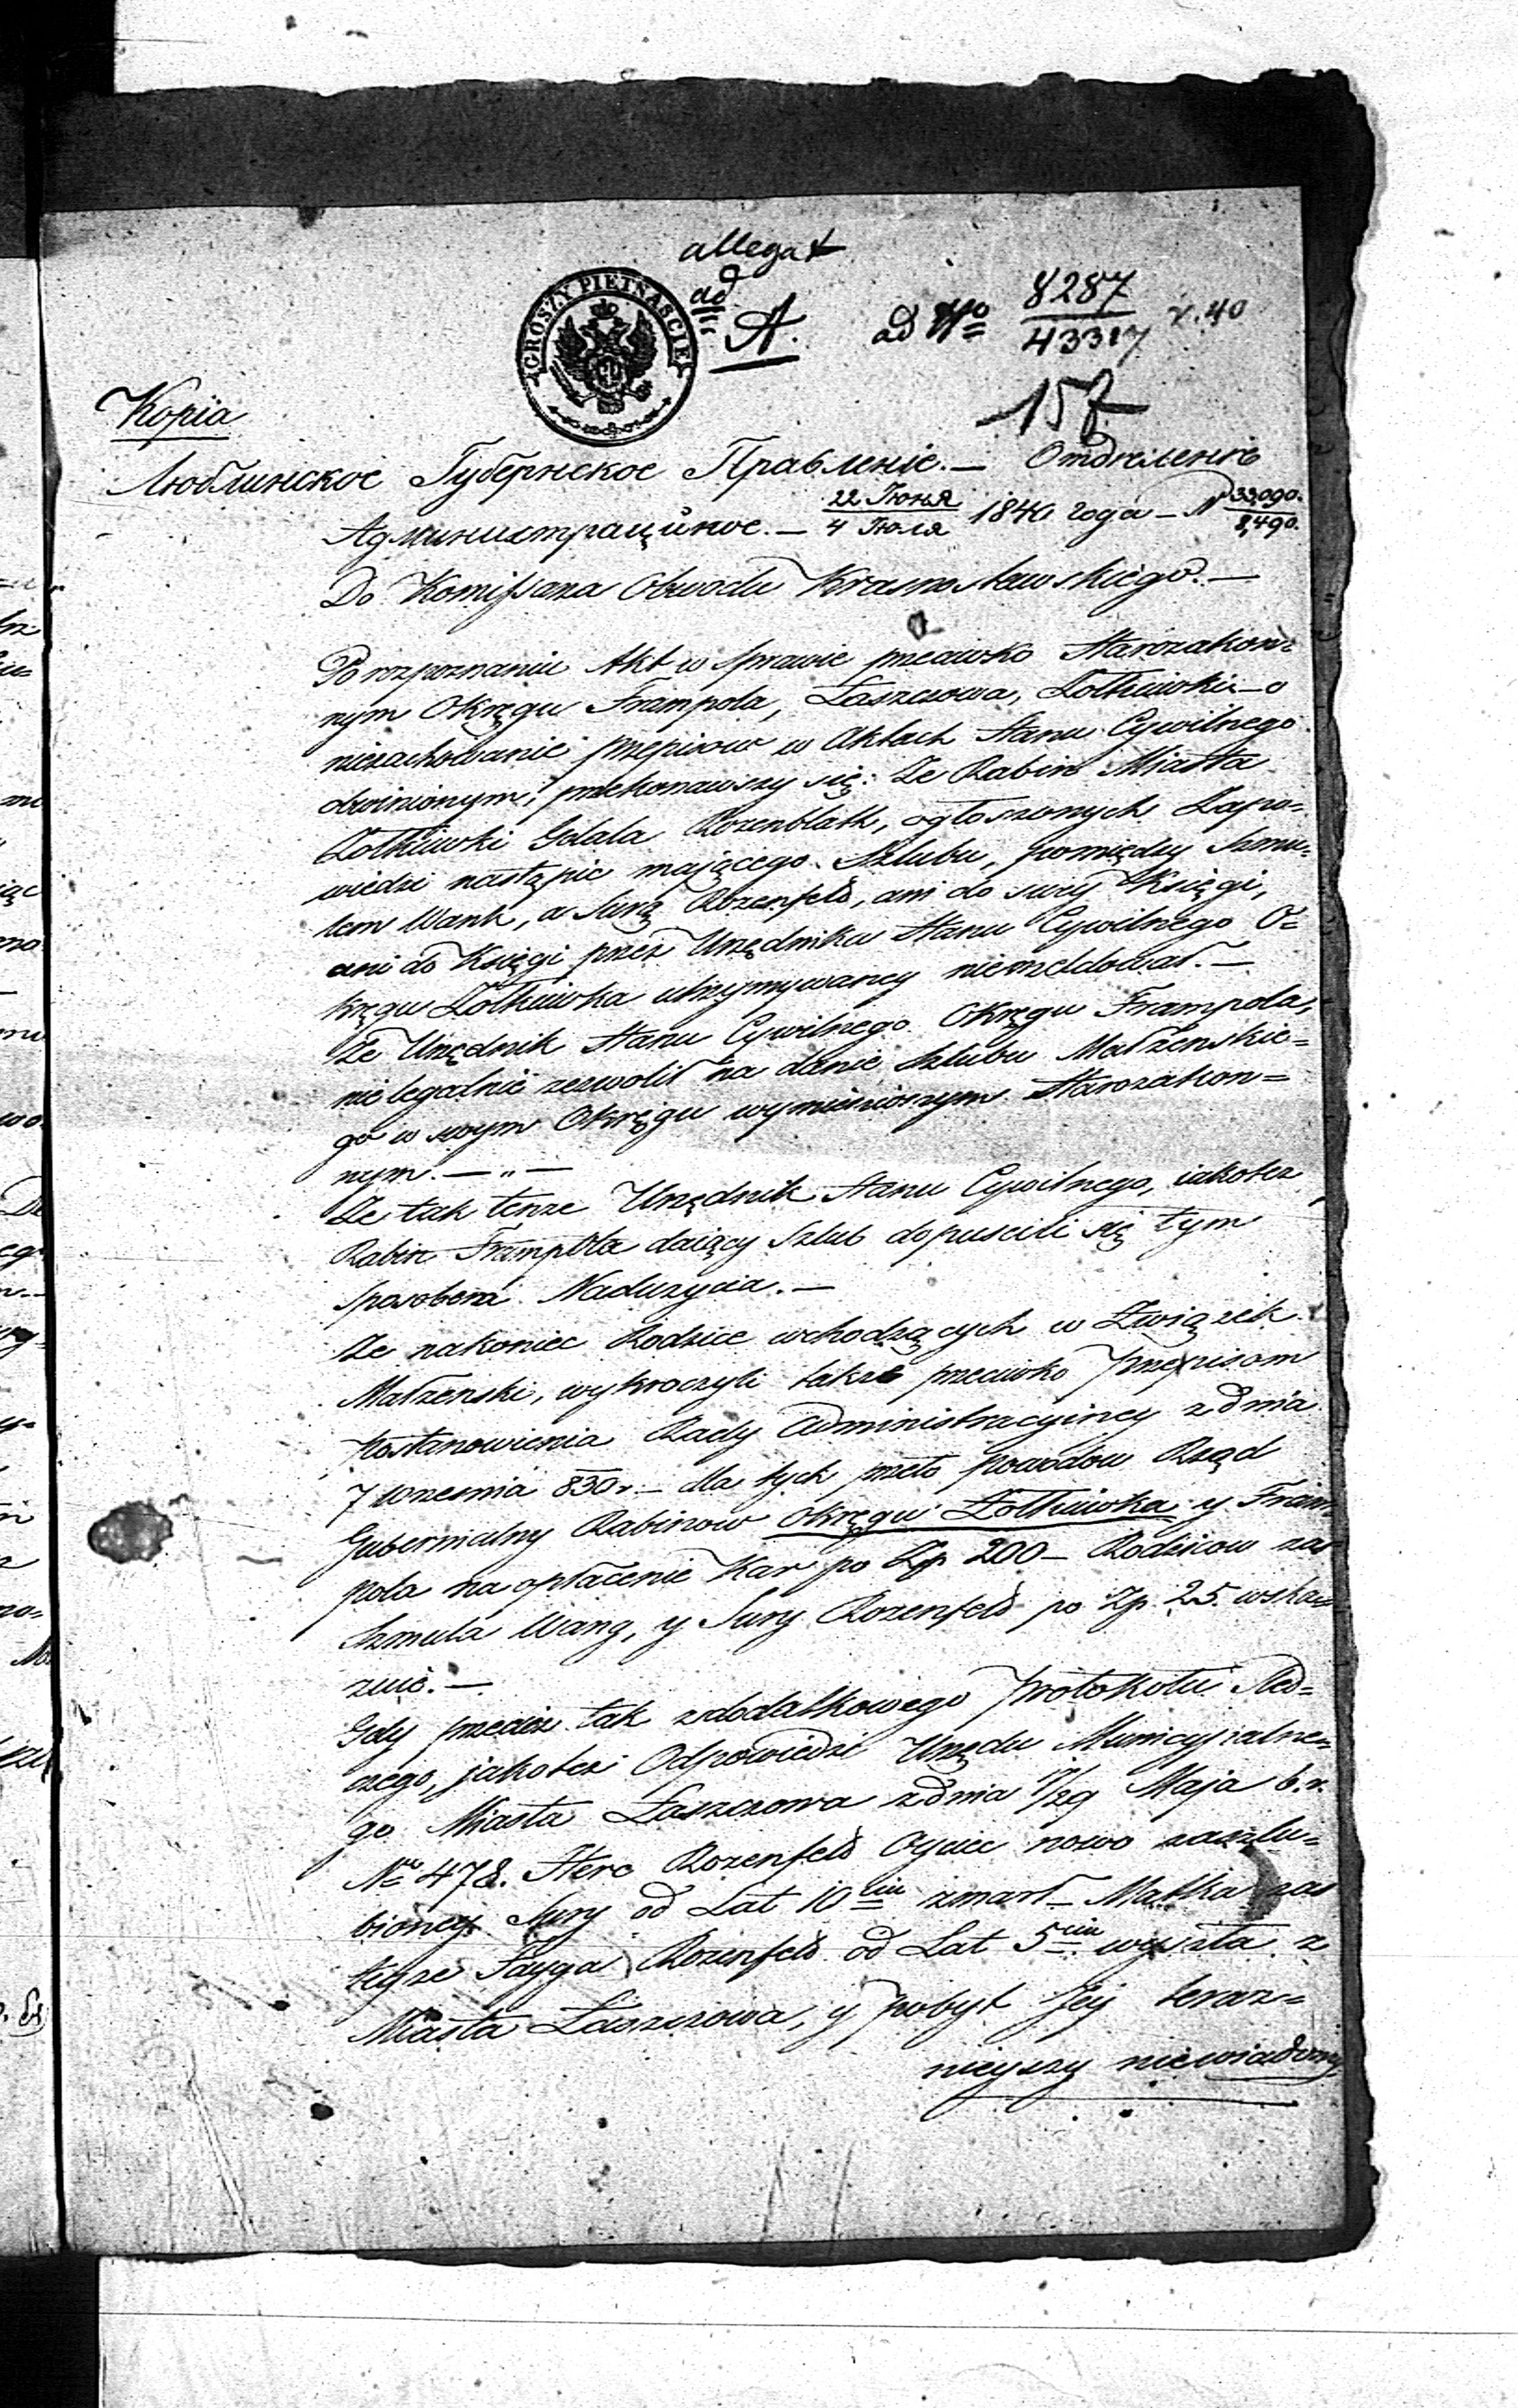 allegat
ad
A.
ad No 8287/43317 r. 40
157
GROSZY PIETNAŚCIE
Kopia
Люблинское Губернское Правленіе. — Отдѣленіе
Администраційное. — 22 Июня/4 Июля 1840 года — N 33,090./8,490.
Do Komissarza Obwodu Krasnostawskiego. —
Po rozpoznaniu Akt w sprawie przeciwko Starozakon=
nym Okręgu Frampola, Łaszczowa, Żołkiewki — o
niezachowanie przepisow w Aktach Stanu Cywilnego
obwinionym, przekonawszy się: Że Rabin Miasta
Żołkiewki Gdala Rozenblatt, ogłoszonych Zapo=
wiedzi nastąpic mającego Szlubu, pomiędzy Szmu=
lem Wank, a Surą Rozenfeld, ani do swey Księgi,
ani do Księgi przez Urzędnika Stanu Cywilnego O=
kręgu Żołkiewka utrzymywaney niemeldował. —
Że Urzędnik Stanu Cywilnego Okręgu Frampola,
nielegalnie zezwolił na danie Szlubu Małżenskie=
go w swym Okręgu wymienionym Starozakon=
nym. — " —
Że tak tenże Urzędnik Stanu Cywilnego, iakotez
Rabin Frampola daiący Szlub dopuscili się tym
sposobem Naduzycia. —
Że nakoniec Rodzice wchodzących w Związek
Małżenski, wykroczyli także przeciwko przepisom
Postanowienia Rady Administracyiney z dnia
7 Wrzesnia 830 r. — dla tych przeto powodow Rząd
Gubernialny Rabinow Okręgu Żołkiewka y Fram
pola na opłacenie Kar po Zp 200 — Rodzicow zas
Szmula Wang, y Sury Rozenfeld po Zp. 25. wska=
zuie. —
Gdy przeciez tak z dodatkowego Protokołu Sled=
czego, jakotez Odpowiedzi Urzędu Municypalne=
go Miasta Łaszczowa z dnia 17/29 Maja b. r.
No 478. Herc Rozenfeld Oyciec nowo zaszlu=
bioney Sury od Lat 10ciu zmarł — Matka zas
teyze Fayga Rozenfeld od Lat 5ciu wyszła z
Miasta Łaszczowa, y pobyt Jey teraz=
nieyszy niewiadomy